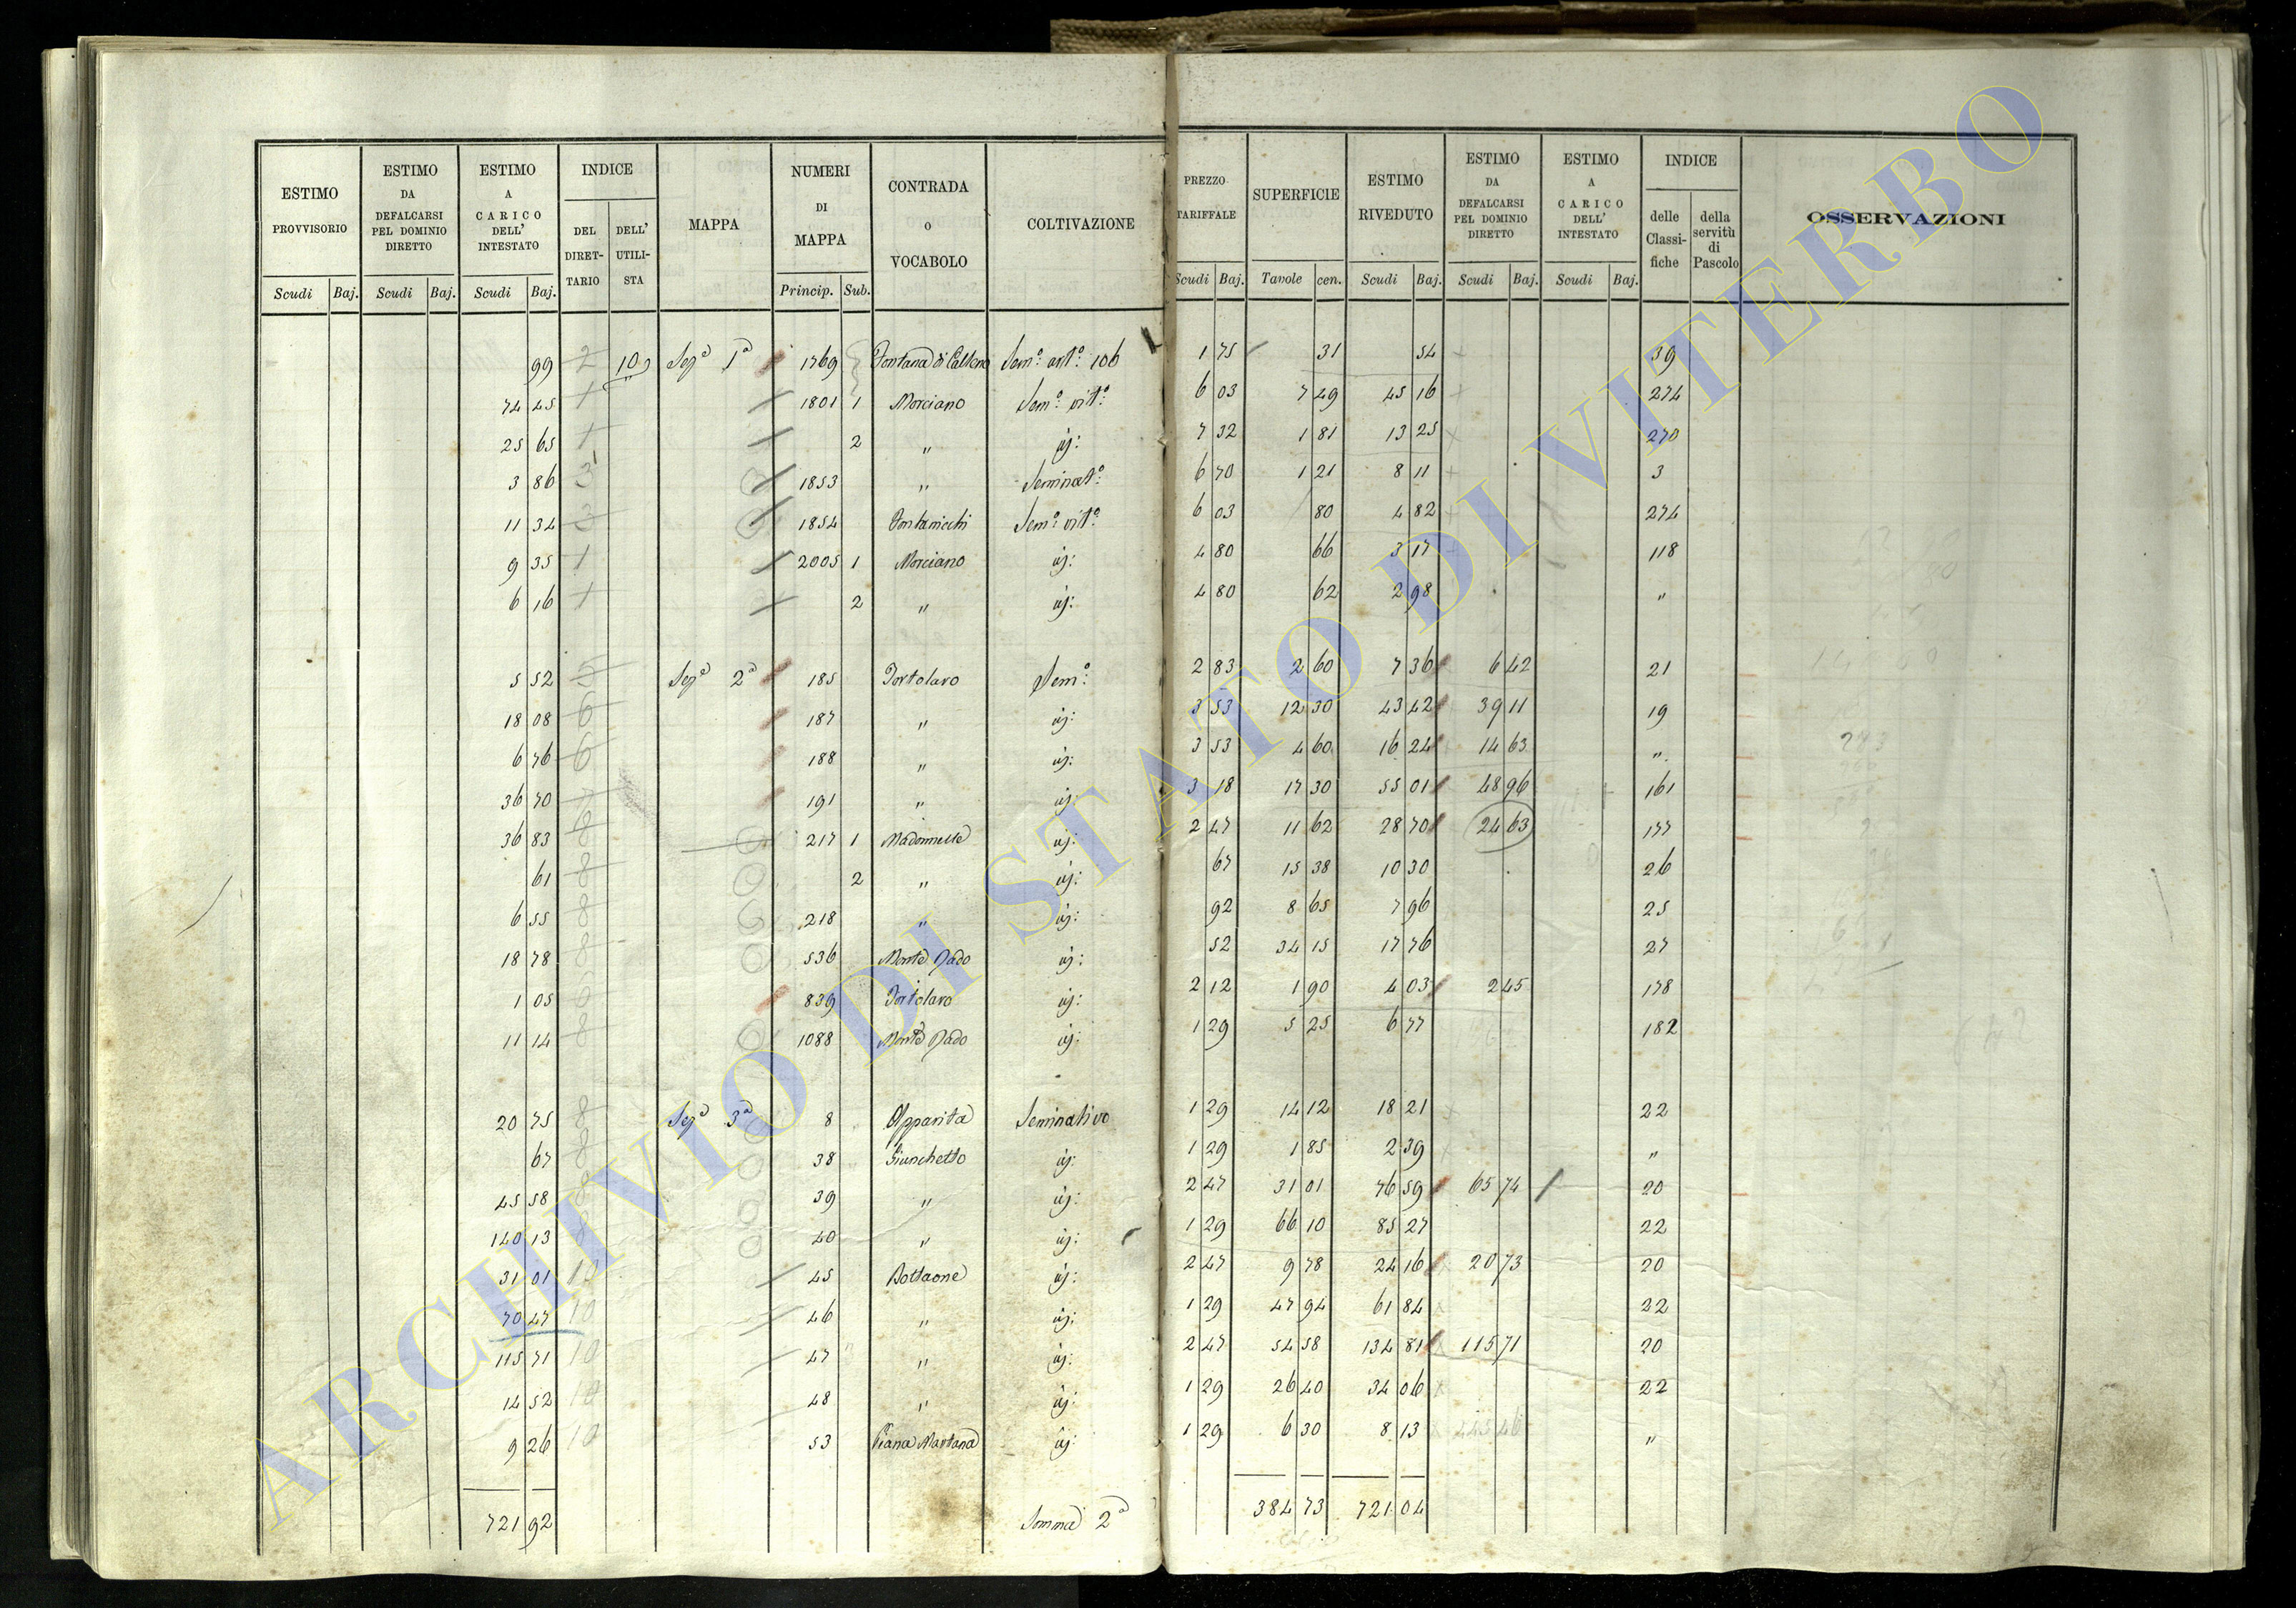 ESTIMO PROVVISORIO | ESTIMO DA DEFALCARSI PEL DOMINIO DIRETTO | ESTIMO A CARICO DELL' INTESTATO | INDICE DEL DIRETTARIO | DELL' UTILISTA | MAPPA | NUMERI DI MAPPA | CONTRADA o VOCABOLO | COLTIVAZIONE | PREZZO TARIFFALE | SUPERFICIE | ESTIMO RIVEDUTO | ESTIMO DA DEFALCARSI PEL DOMINIO DIRETTO | ESTIMO A CARICO DELL' INTESTATO | INDICE delle Classifiche | della servitù di Pascolo | OSSERVAZIONI
Scudi Baj. Scudi Baj. Scudi Baj. Princip. Sub. Scudi Baj. Tavole cen. Scudi Baj. Scudi Baj. Scudi Baj.
99 2 10 Sezª 1ª 1769 Fontana di Sem.º art.º 106 1 75 31 54 39
74 45 1 1801 1 Morciano Sem.º vit.º 6 03 7 49 45 16 274
25 65 1 2 " id: 7 32 1 81 13 25 270
3 86 3 1853 " Seminat.º 6 70 1 21 8 11 3
11 34 3 1854 Sem.º vit.º 6 03 80 4 82 274
9 35 1 2005 1 Morciano id: 4 80 66 3 17 118
6 16 1 2 " id: 4 80 62 2 98 "
5 52 5 Sezª 2ª 185 Tortolaro Sem.º 2 83 2 60 7 36 6 42 21
18 08 6 187 " id: 3 53 12 30 43 42 39 11 19
6 76 6 188 " id: 3 53 4 60 16 24 14 63 "
36 70 7 191 " id: 3 18 17 30 55 01 48 96 161
36 83 8 217 1 Madonnelle id: 2 47 11 62 28 70 24 63 177
61 8 2 " id: 67 15 38 10 30 26
6 55 8 218 " id: 92 8 65 7 96 25
18 78 8 536 Monte Dado id: 52 34 15 17 76 27
1 05 6 839 Tortolaro id: 2 12 1 90 4 03 2 45 178
11 14 8 1088 Monte Dado id: 1 29 5 25 6 77 182
20 75 8 Sezª 3ª 8 Apparita Seminativo 1 29 14 12 18 21 22
67 8 38 Giunchetto id: 1 29 1 85 2 39 "
45 58 8 39 " id: 2 47 31 01 76 59 65 74 20
140 13 8 40 " id: 1 29 66 10 85 27 22
31 01 10 45 Bottaone id: 2 47 9 78 24 16 20 73 20
70 47 10 46 " id: 1 29 47 94 61 84 22
115 71 10 47 " id: 2 47 54 58 134 81 115 71 20
14 52 10 48 " id: 1 29 26 40 34 06 22
9 26 10 53 Piana Martana id: 1 29 6 30 8 13 "
721 92 Somma 2ª 384 73 721 04
ARCHIVIO DI STATO DI VITERBO